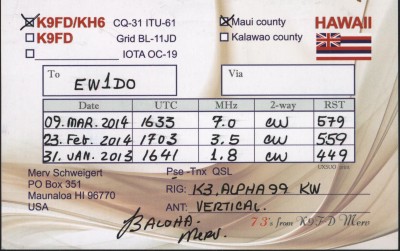 K9FD/KH6 CQ-31 ITU-61 Maui county HAWAII
K9FD Grid BL-11JD Kalawao county
IOTA OC-19
To EW1DO Via
Date UTC MHz 2-way RST
09. MAR. 2014 1633 7.0 CW 579
23. Feb. 2014 1703 3.5 CW 559
31. JAN. 2013 1641 1.8 CW 449
Merv Schweigert Pse -Tnx QSL
PO Box 351
Maunaloa HI 96770 RIG: K3, ALPHA 99 KW
USA ANT: VERTICAL.
ALOHA. 73's from K9FD Merv
MERV.